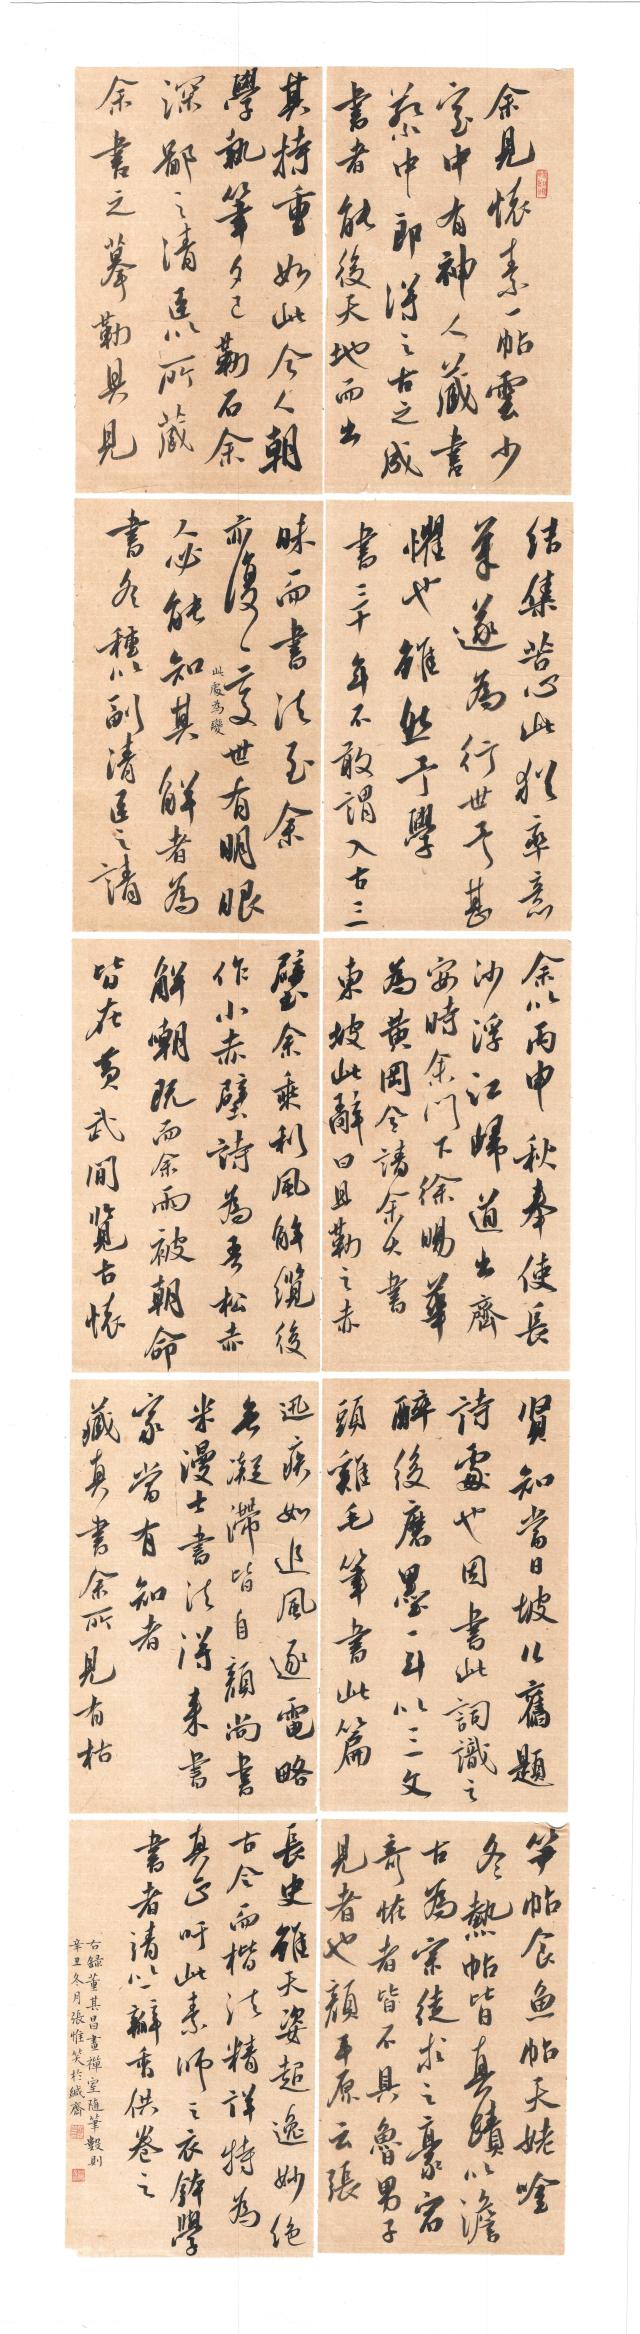 余見懷素一帖雲少
室中有神人藏書
蔡中郎得之古之成
書者能後天地而出
其持重如此今人朝
學執筆夕已勒石余
深鄙之清臣以所藏
余書之摹勒具見
結集苦心此猶率意
筆遂為行世予甚
懼也雖然予學
書三十年不敢謂入古三
昧而書法至余
亦復〻変世有明眼
此處為變
人必能知其解者為
書各種以副清臣之請
余以丙申秋奉使長
沙浮江歸道出齊
安時余門下徐暘華
為黃岡令請余大書
東坡此辭曰且勒之赤
壁余乘利風解纜後
作小赤壁詩為吾松赤
解嘲既而余兩被朝命
皆在黃武間覽古懷
賢知當日坡公舊題
詩處也因書此詞識之
醉後磨墨一斗以三文
頭雞毛筆書此篇
迅疾如追風逐電略
無凝滯皆自顏尚書
米漫士書法得來書
家當有知者
藏真書余所見有枯
笋帖食魚帖天姥唫
冬熱帖皆真蹟以澹
古為宗徒求之豪宕
奇怪者皆不具魯男子
見者也顏平原云張
長史雖天姿超逸妙絕
古今而楷法精詳特為
真正吁此素師之衣缽學
書者請以瓣香供養之
右錄董其昌畫禪室隨筆數則
辛丑冬月張惟笑於緘齋